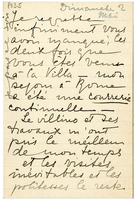 1925
Dimanche 2
Mai
Je regrette
infiniment vous
avoir manqué les
deux fois que
vous êtes venus
à la Villa — mon
séjour à Rome
a été une courrerie
continuelle —
Le villino et ses
travaux m'ont
pris le meilleur
de mon temps
et les visites
inévitables et les
politesses le reste